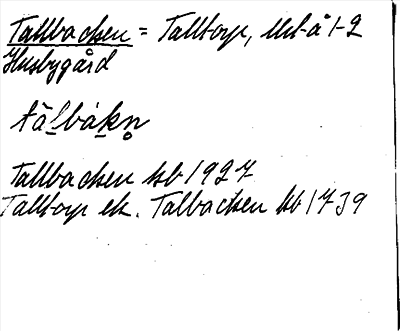 Tallbacken = Talltorp, Utl-å 1-2
Husbygård
tàlbákn̥
Tallbacken hb 1927
Talltorp ek. Talbacken hb 1739